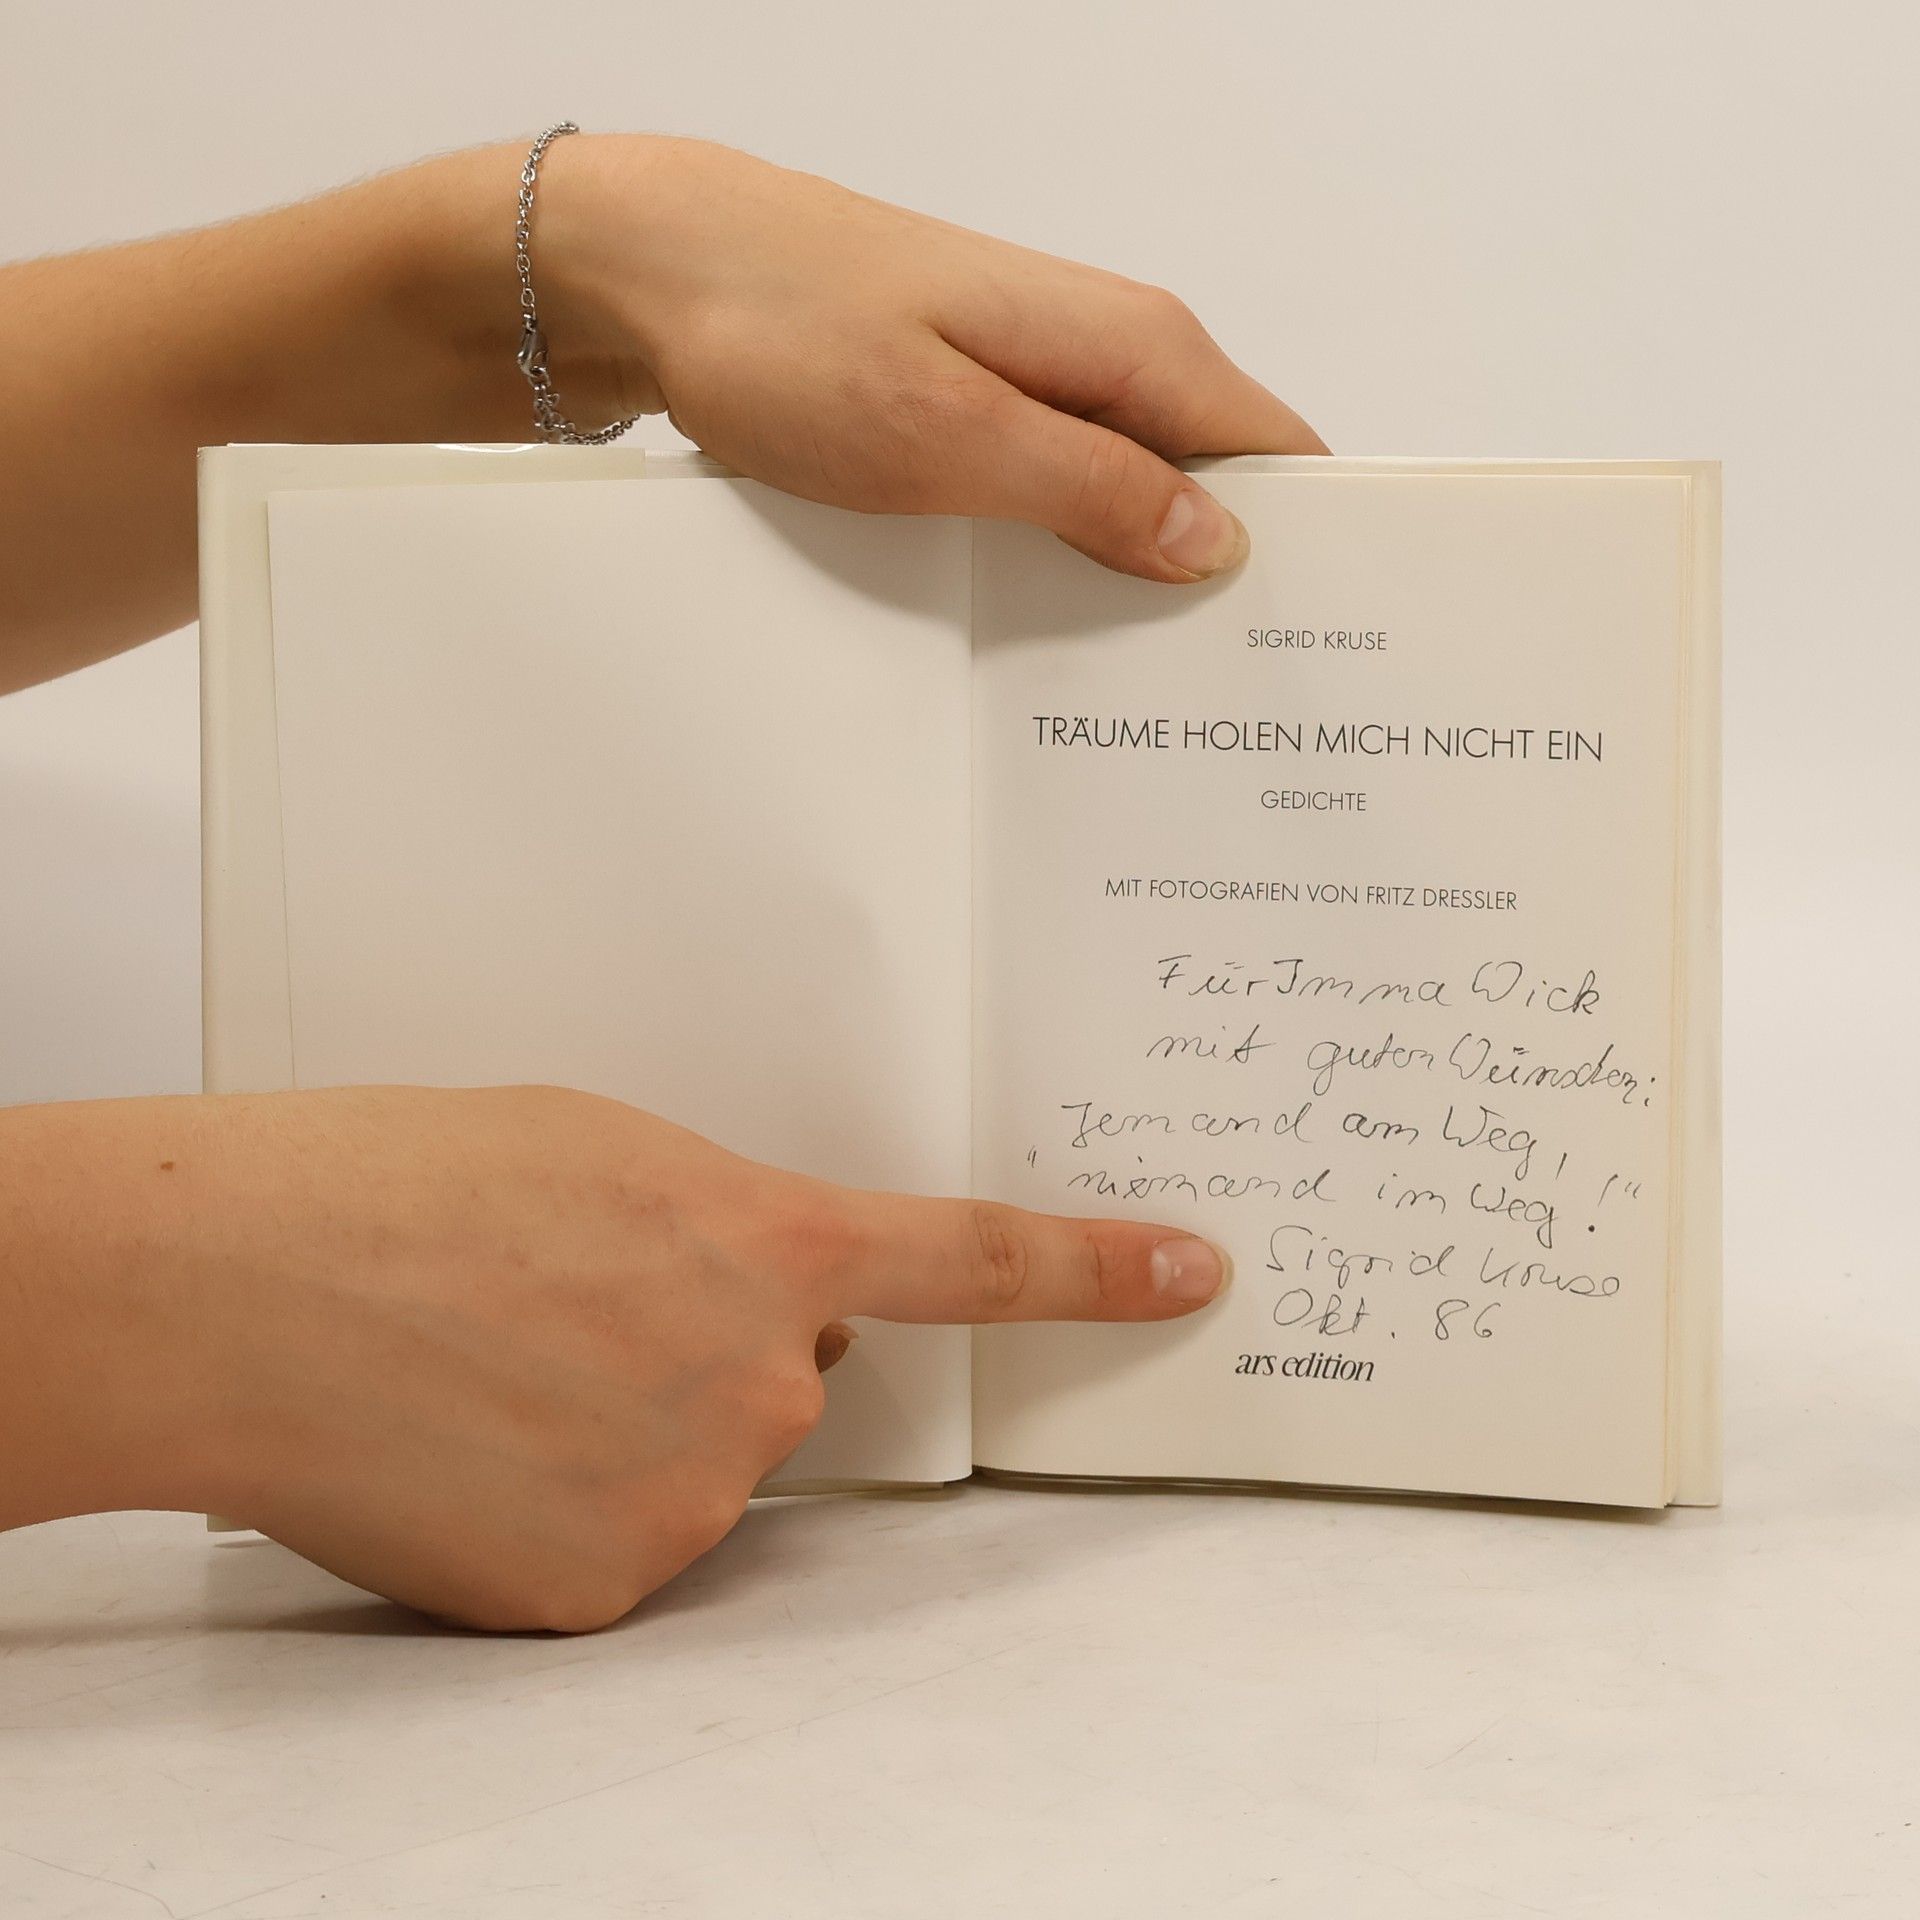 SIGRID KRUSE
TRÄUME HOLEN MICH NICHT EIN
GEDICHTE
MIT FOTOGRAFIEN VON FRITZ DRESSLER
Für Imma Wick
mit guten Wünschen:
Jemand am Weg,
" niemand im Weg!"
Sigrid Kruse
Okt. 86
ars edition